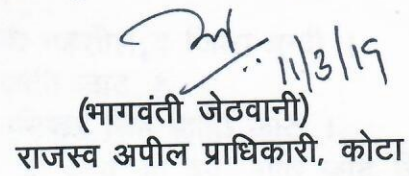 11/3/19
(भागवंती जेठवानी)
राजस्व अपील प्राधिकारी, कोटा